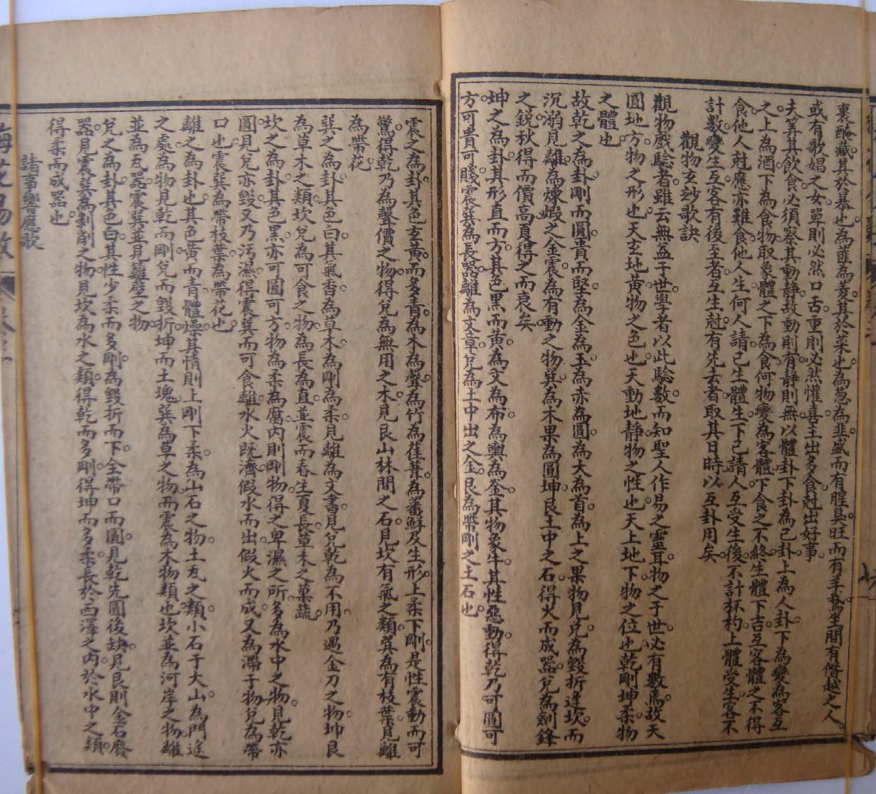 裏醃藏其於基也為匪為菱其於菜也為蔥為韭蓝而有腥臭旺而有羊鵝坐間有僭越之人
或有歌唱之女單則必然口舌重則必然懽喜生出多食尅出好事
夫筭其飲食必須察其動靜故動則有靜則無以體卦下卦為己卦上為人卦下為變為客互
之上為酒下為食物取象體之下為食何物變為客體下食之不終生體下吉互客體之不得
食他人尅應亦難食他人生何人請己生體生下己請人互受生後不計杯杓上體受生客不
計數變生互客有後至者互生尅有先去者取其日時以互卦用矣
觀物玄妙歌訣
觀物戲驗者雖云無益于世學者以此驗數而知聖人作易之靈耳物之于世必有數焉故天
圓地方物之形也天玄地黃物之色也天動地靜物之性也天上地下物之位也乾剛坤柔物
之體也
故乾之為卦剛而圓貴而堅為金為玉為赤為圓為大為首為上之果物見兌為毀折逢坎而
沉溺見離為煉煅之金震為有動之物巽為木果為圓坤艮土中之石得火而成器兌為劍鋒
之銳秋得而價高夏得之而衰矣
坤之為卦其形直而方其色黑而黃為文為布為輿為釜其物象牛其性惡動得乾乃可圓可
方可貴可賤震巽為長器離為文章兌為土中出之金艮為帶剛之土石也
震之為卦其色玄黃而多青為木為聲為竹為萑葦為蕃鮮及生形上柔下剛是性震動而可
驚得乾乃為聲價之物得兌為無用之木見艮山林間之石見坎有氣之類巽為有枝葉見離
為帶花
巽之為卦其色白其氣香為草木為剛為柔見離為文書見兌乾為不用乃遇金刀之物坤艮
為草木之類坎兌為可食之物為長為直並震而春生夏長草木之菓蔬
坎之為卦其色黑亦可圓可方物為柔為腐內則剛物得之卑濕之所多為水中之物見乾亦
圓見兌亦毀又乃污濕得震巽而可食離水火既濟假水而出假火而成又為滯于物兌為帶
口也震巽為帶枝葉為帶花也
離之為卦也其色黃而青體燥其情則上剛下柔為山石之物土瓦之類小石于大山為門途
之處為物見乾而剛兌而毀折坤而土塊巽為草之物而震為木物類也坎並為河岸之物離
並為瓦器震巽並見離壁之物
兌之為卦其色白其性少柔而多剛為毀折而下金帶口而圓見乾先圓後缺見艮則金石廢
器見震巽為剝削之物見坎為水之類得乾而多剛得坤而多柔長於西澤之內於水中之類
得柔而成器也
諸事響應歌
梅花易數